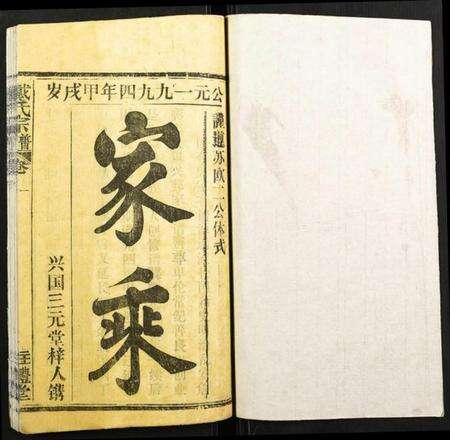 公元一九九四年甲戌岁
谨遵苏欧二公体式
家乘
兴国三元堂梓人镌
戴氏宗譜
卷一
註禮堂